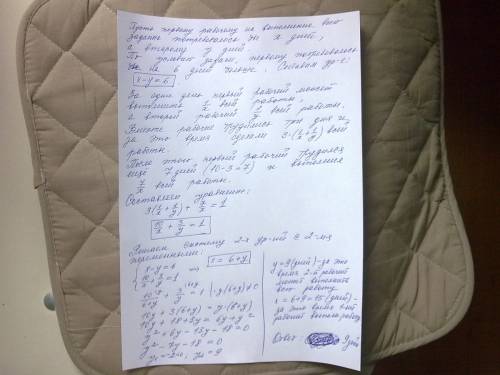 Пусть первому рабочему на выполнение всего
задания потребовалось бы x дней,
а второму y дней
По условию задачи, первому потребовалось
бы на 6 дней больше. Составим ур-е:
x-y=6
За один день первый рабочий может
выполнить 1/x всей работы,
а второй рабочий 1/y всей работы.
Вместе рабочие трудились три дня и
за это время сделали 3·(1/x+1/y) всей
работы.
После этого первый рабочий трудился
еще 7 дней (10-3=7) и выполнил
7/x всей работы.
Составляем уравнение:
3(1/x+1/y)+7/x=1
10/x+3/y=1
Решаем систему 2-х ур-ий с 2-мя
переменными:
{x-y=6 => x=6+y
10/x+3/y=1
10/(6+y)+3/y=1 |·y(6+y)≠0
10y+3(6+y)=y(6+y)
10y+18+3y=6y+y²
y²+6y-13y-18=0
y²-7y-18=0
y₁=-2, y₂=9
y=9(дней)-за это
время 2-й рабочий
может выполнить
всю работу.
x=6+9=15(дней)-
за это время 1-ый
рабочий выполнит работу
Ответ: 9 дней